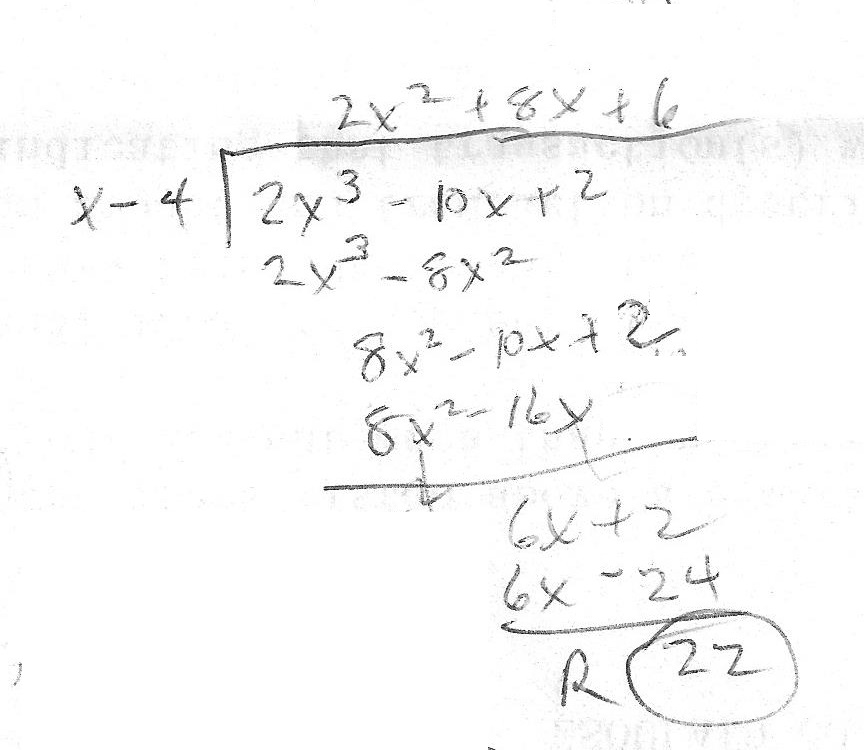 2x² + 8x + 6
x - 4 2x³ - 10x + 2
2x³ - 8x²
8x² - 10x + 2
8x² - 16x
6x + 2
6x - 24
R 22